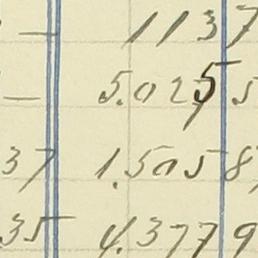 — 1137
— 5.0255
37 1.5058
35 4.3779